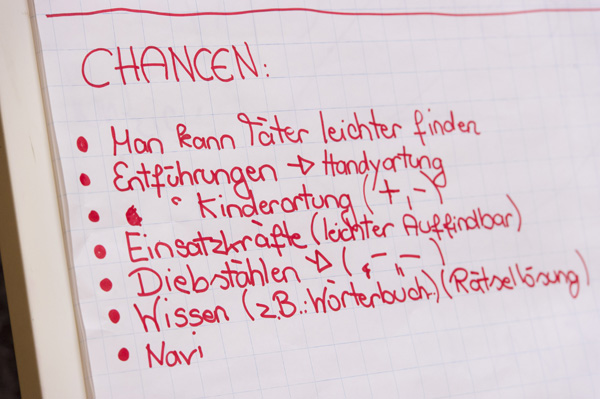 CHANCEN:
• Man kann Täter leichter finden
• Entführungen → Handyortung
• " Kinderortung (+,-)
• Einsatzkräfte (leichter Auffindbar)
• Diebstählen → ( „ — " — )
• Wissen (z.B.: Wörterbuch.) (Rätsellösung)
• Navi